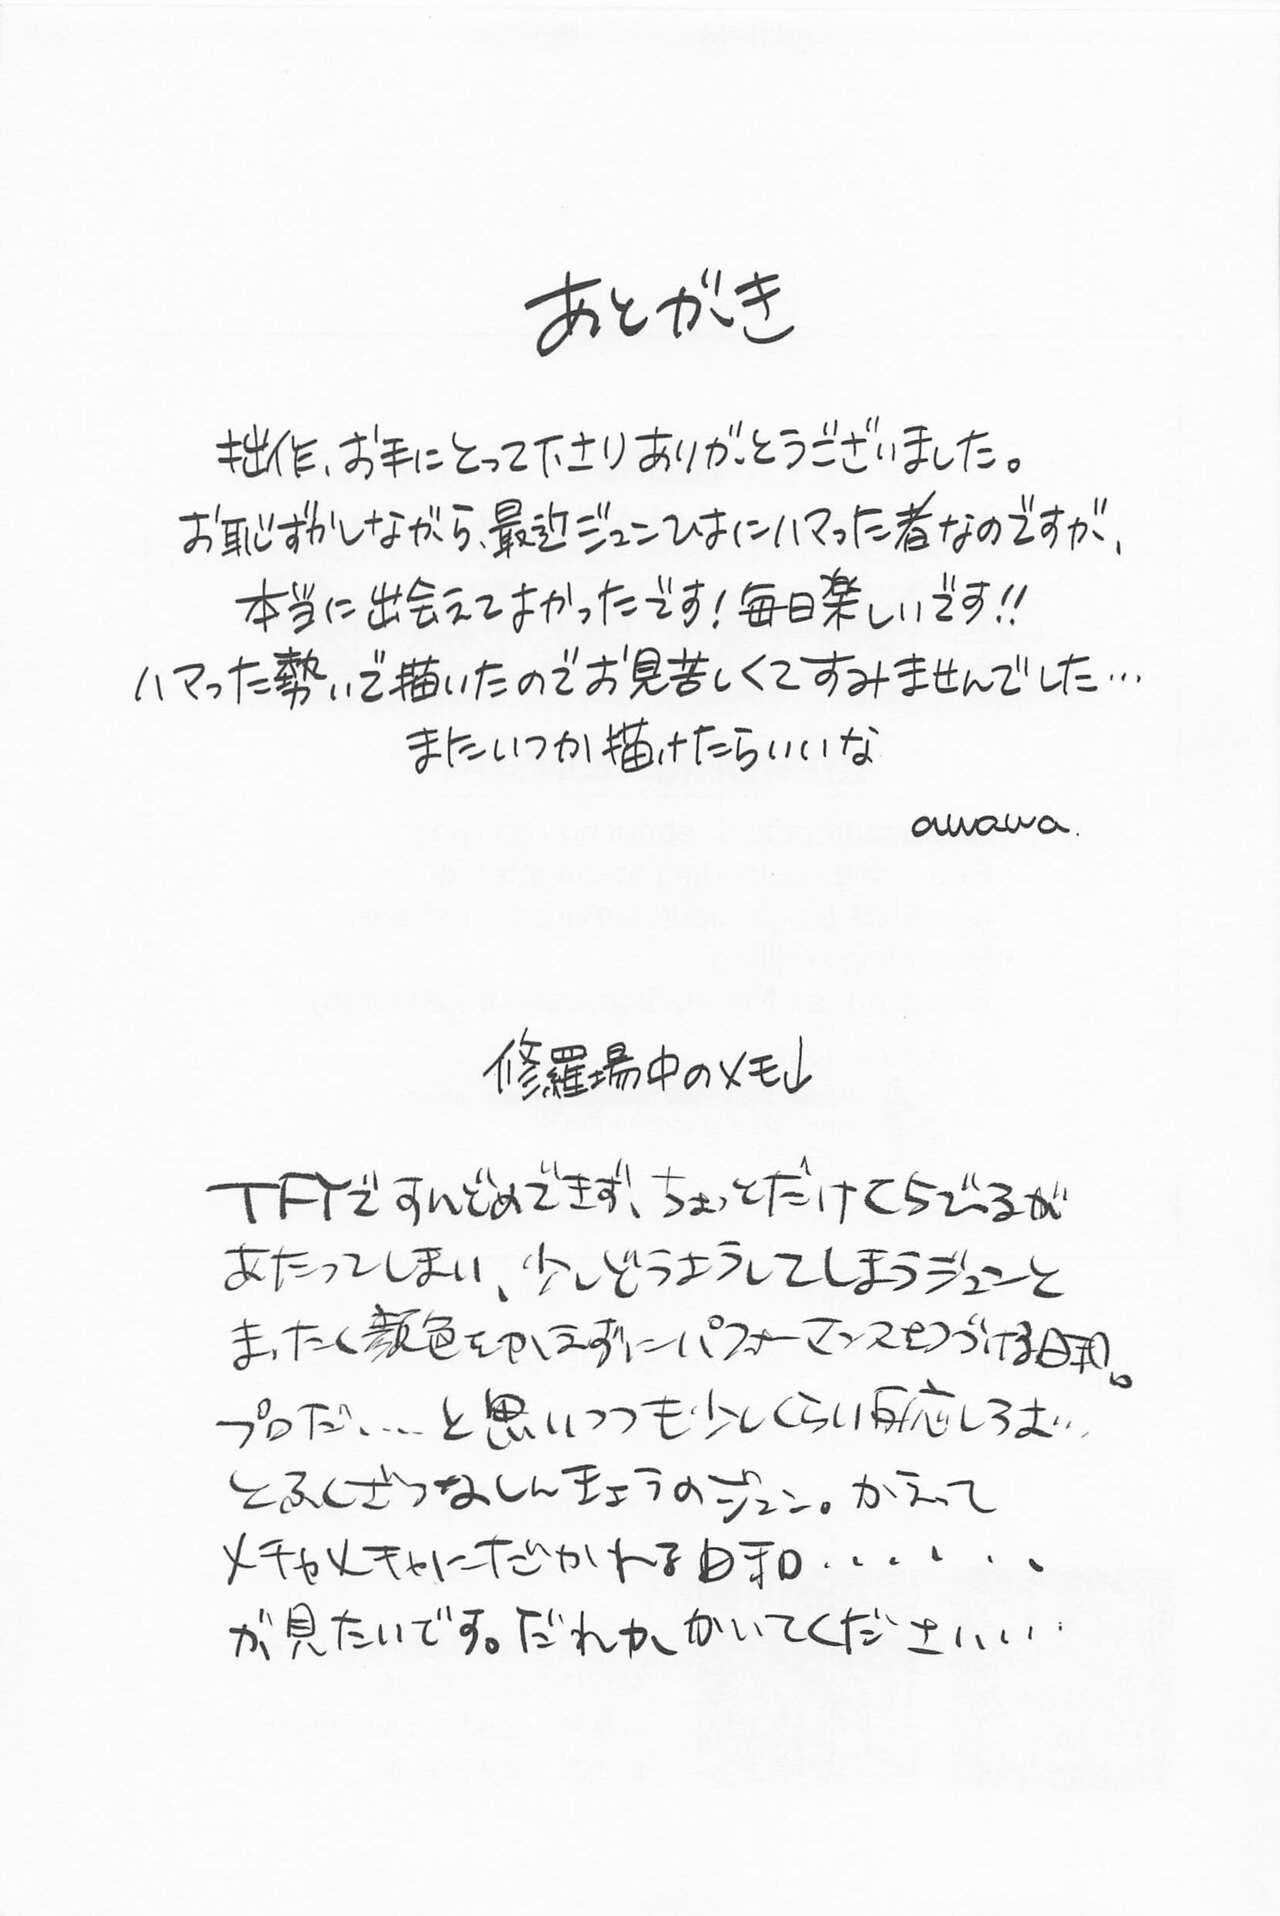 あとがき
拙作、お手にとって下さりありがとうございました。
お恥ずかしながら、最近ジュンひよにハマった者なのですが、
本当に出会えてよかったです!毎日楽しいです!!
ハマった勢いで描いたのでお見苦しくてすみませんでした…
またいつか描けたらいいな
awawa.
修羅場中のメモ↓
TFYですんどめできず、ちょっとだけくちびるが
あたってしまい、少しどうようしてしまうジュンと
まったく顔色をかえずにパフォーマンスをつづける日和。
プロだ……と思いつつも少しくらい反応しろよ…
とふくざつなしんきょうのジュン。かえって
メチャメチャにだかれる日和・・・・・・、
が見たいです。だれかかいてくださいいい…